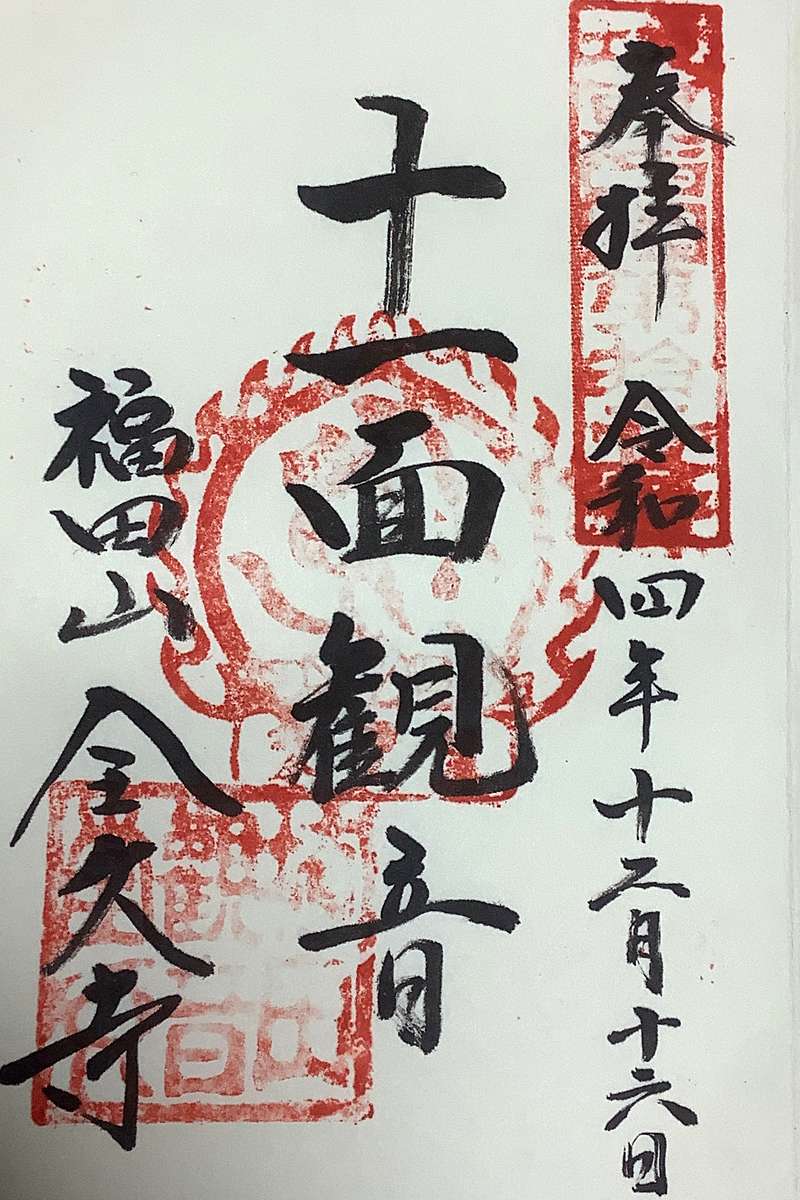 奉拝 令和四年十二月十六日
十一面観音
福田山 全久寺